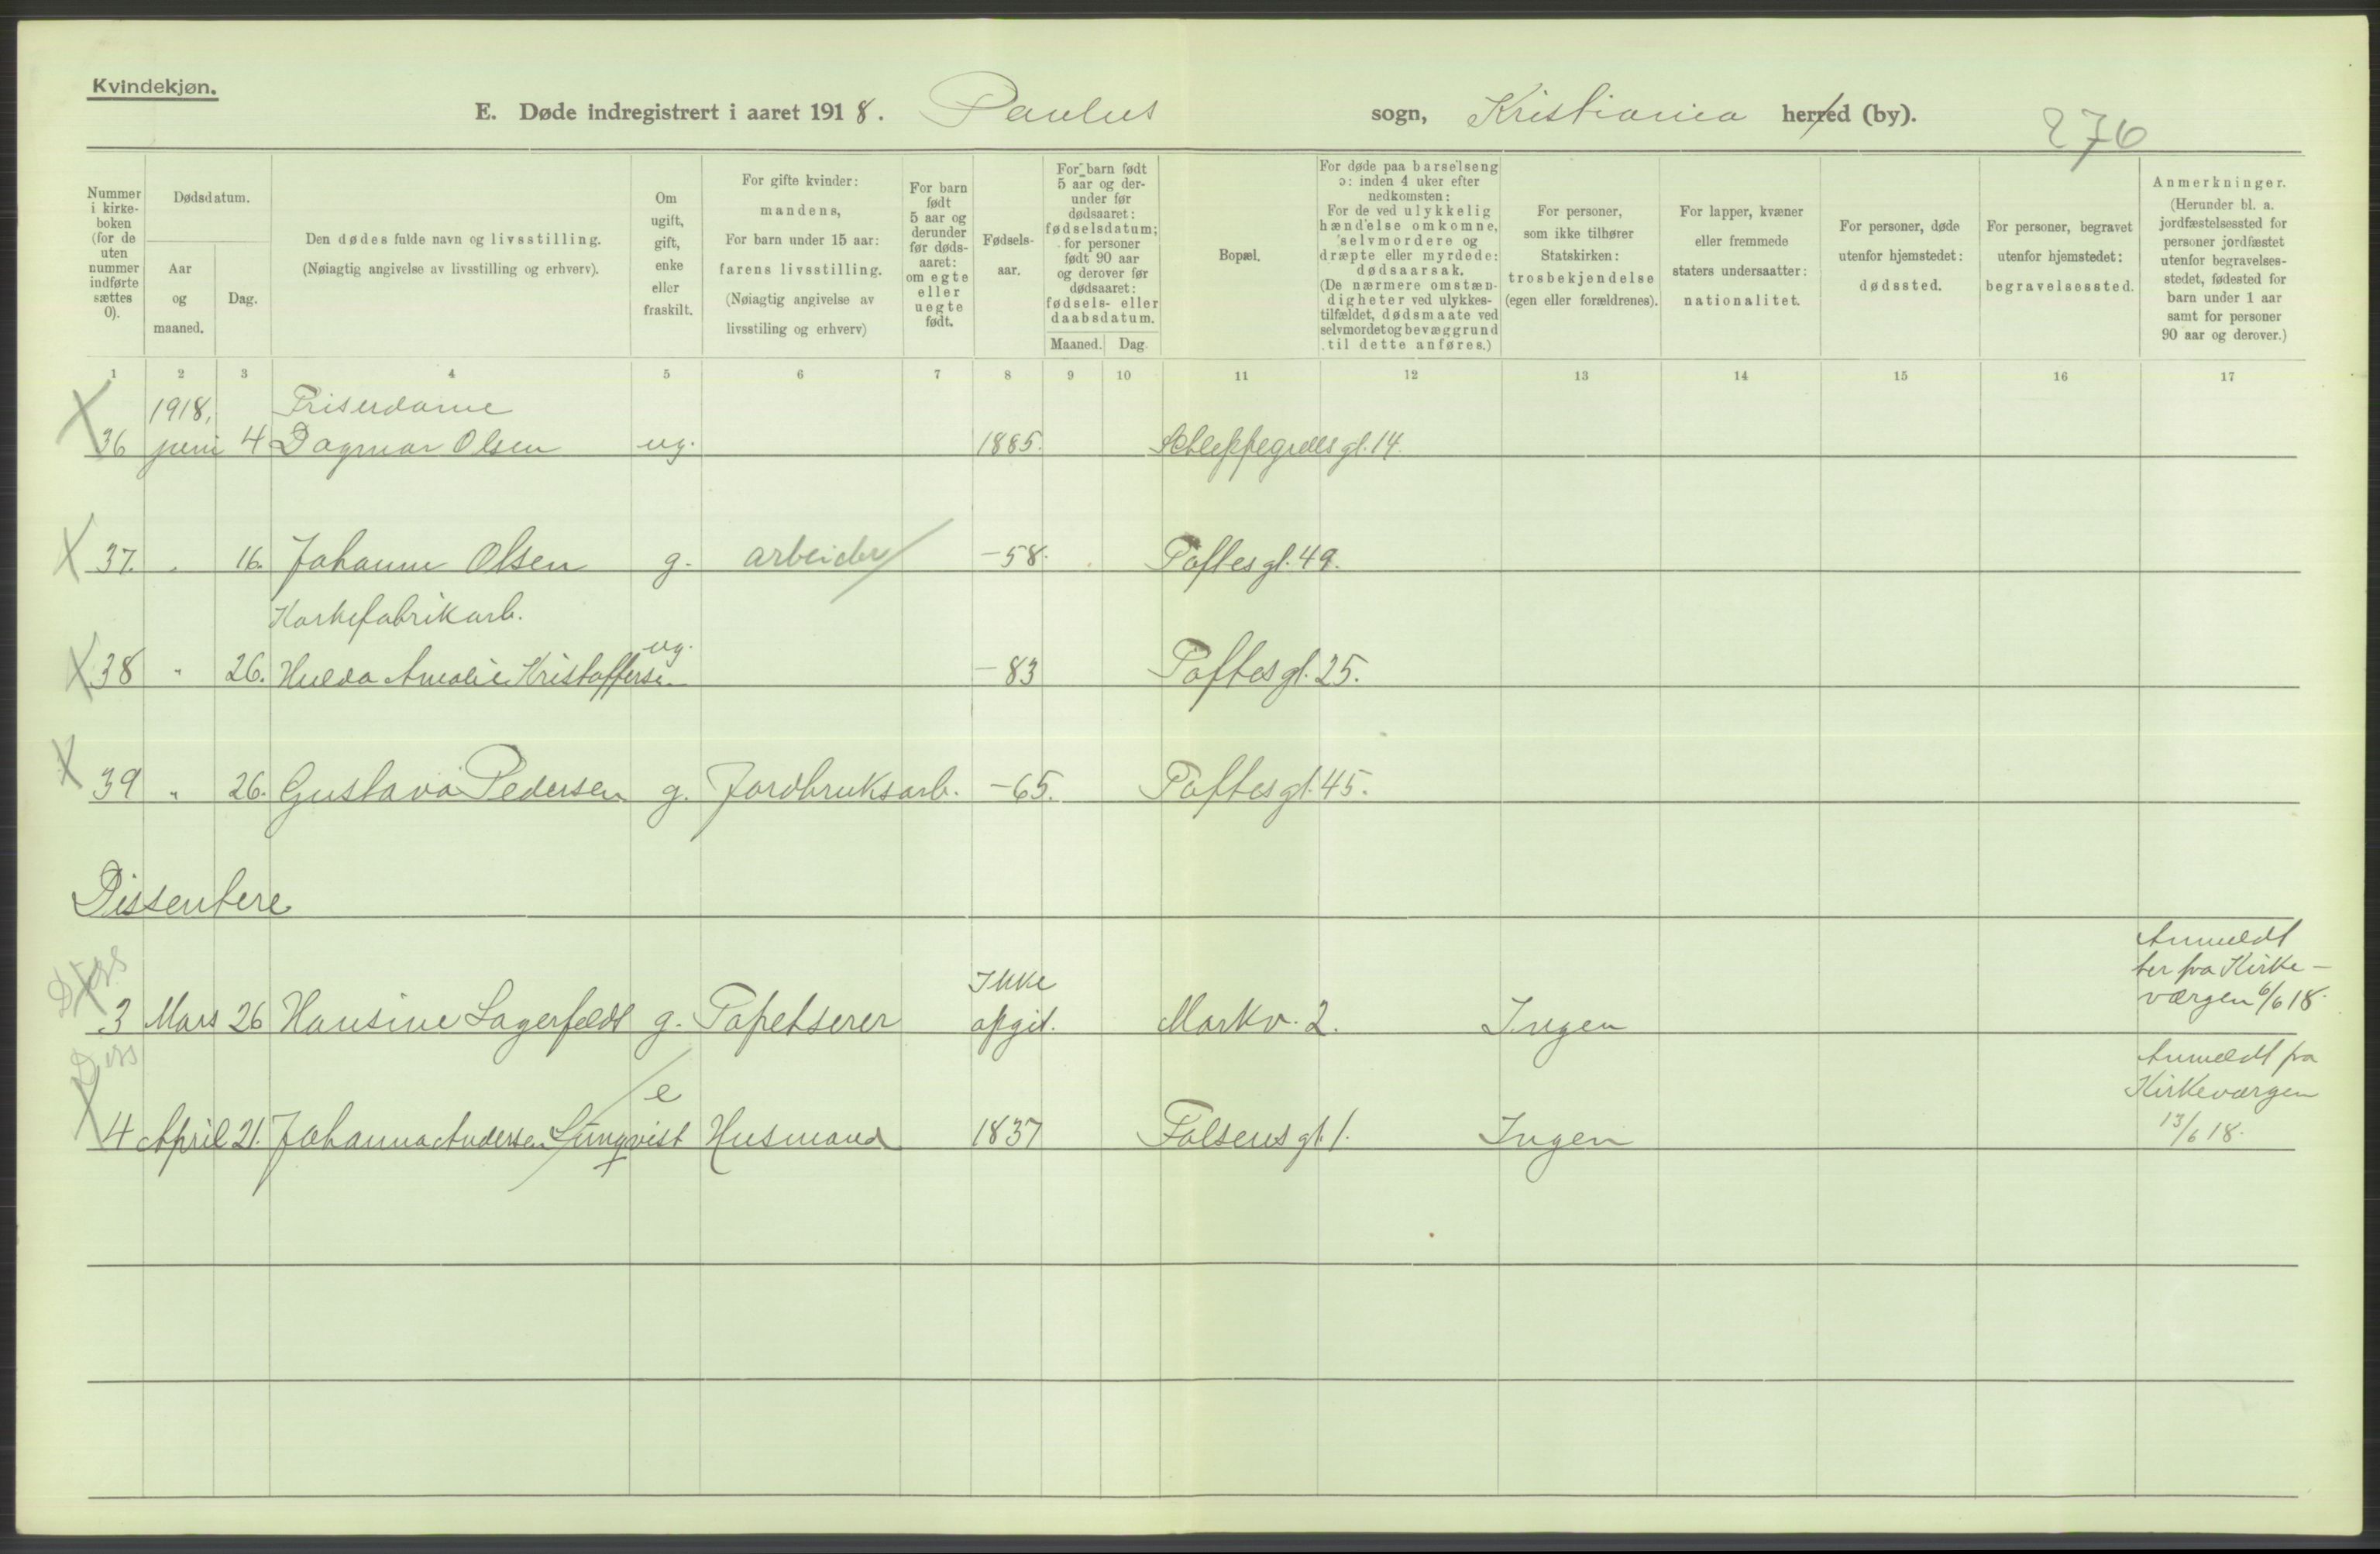 Kvindekjøn.
E. Døde indregistrert i aaret 1918. Paulus sogn, Kristiania herred (by). 276
Nummer i kirkeboken (for de uten nummer indførte sættes 0).
Dødsdatum.
Aar og maaned.
Dag.
Den dødes fulde navn og livsstilling.
(Nøiagtig angivelse av livsstilling og erhverv).
Om ugift, gift, enke eller fraskilt.
For gifte kvinder: mandens,
For barn under 15 aar: farens livsstilling.
(Nøiagtig angivelse av livsstiling og erhverv)
For barn født 5 aar og derunder før dødsaaret: om egte eller uegte født.
Fødselsaar.
For barn født 5 aar og derunder før dødsaaret: fødselsdatum; for personer født 90 aar og derover før dødsaaret: fødsels- eller daabsdatum.
Maaned. Dag.
Bopæl.
For døde paa barselseng ɔ: inden 4 uker efter nedkomsten:
For de ved ulykkelig hændelse omkomne, selvmordere og dræpte eller myrdede: dødsaarsak.
(De nærmere omstændigheter ved ulykkestilfældet, dødsmaate ved selvmordet og bevæggrund til dette anføres.)
For personer, som ikke tilhører Statskirken: trosbekjendelse (egen eller forældrenes).
For lapper, kvæner eller fremmede staters undersaatter: nationalitet.
For personer, døde utenfor hjemstedet: dødssted.
For personer, begravet utenfor hjemstedet: begravelsessted.
Anmerkninger.
(Herunder bl. a. jordfæstelsessted for personer jordfæstet utenfor begravelsesstedet, fødested for barn under 1 aar samt for personer 90 aar og derover.)
1 2 3 4 5 6 7 8 9 10 11 12 13 14 15 16 17
1918, Friserdame
X 36 juni 4 Dagmar Olsen ug. 1885. Schleppegrells gt. 14.
X 37. " 16. Johanne Olsen g. arbeider -58. Toftes gt. 49.
Korkefabrikarb.
X 38 " 26. Hulda Amalie Kristoffersen ug. -83 Toftes gt. 25.
X 39 " 26. Gustava Pedersen g. Jordbruksarb. -65. Toftes gt. 45.
Dissentere
Diss
X 3 Mars 26 Hansine Lagerfeldt g. Tapetserer Ikke opgit. Markv. 2. Ingen Anmeldt her fra Kirkeværgen 6/6 18.
Diss
X 4 April 21. Johanna Andersen Ljungqvist e Husmand 1837 Falsens gt. 1. Ingen Anmeldt fra Kirkeværgen 13/6 18.